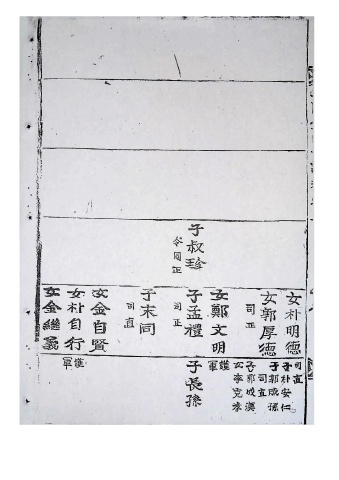 子叔珍
令同正
女朴明德
司直
子朴安仁
女郭厚德
司正
子郭成孫
司直
子郭成漢
女李克孝
女鄭文明
護軍
子孟禮
司正
子長孫
子末同
司直
女金自賢
女朴自行
護軍
女金繼